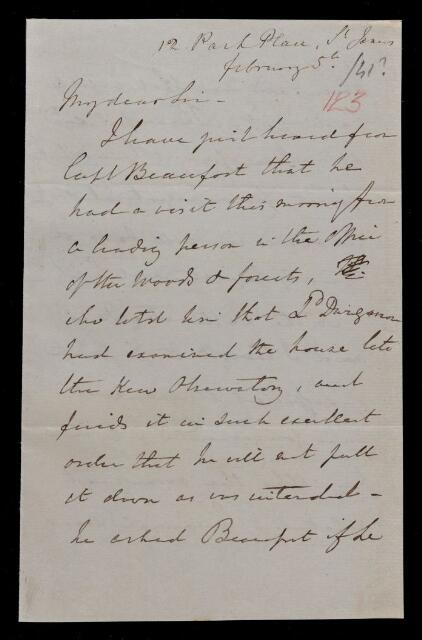 12 Park Place, St James
february 5th /41?
123
My dear Sir -
I have just heard from
Capt Beaufort that he
had a visit this morning from
a leading person in the office
of the Woods & forests,
who total him that Ld Duncannon
had examined the house late
the Kew Observatory, and
finds it in such excellent
order that he will not pull
it down as was intended -
he asked Beaufort if he